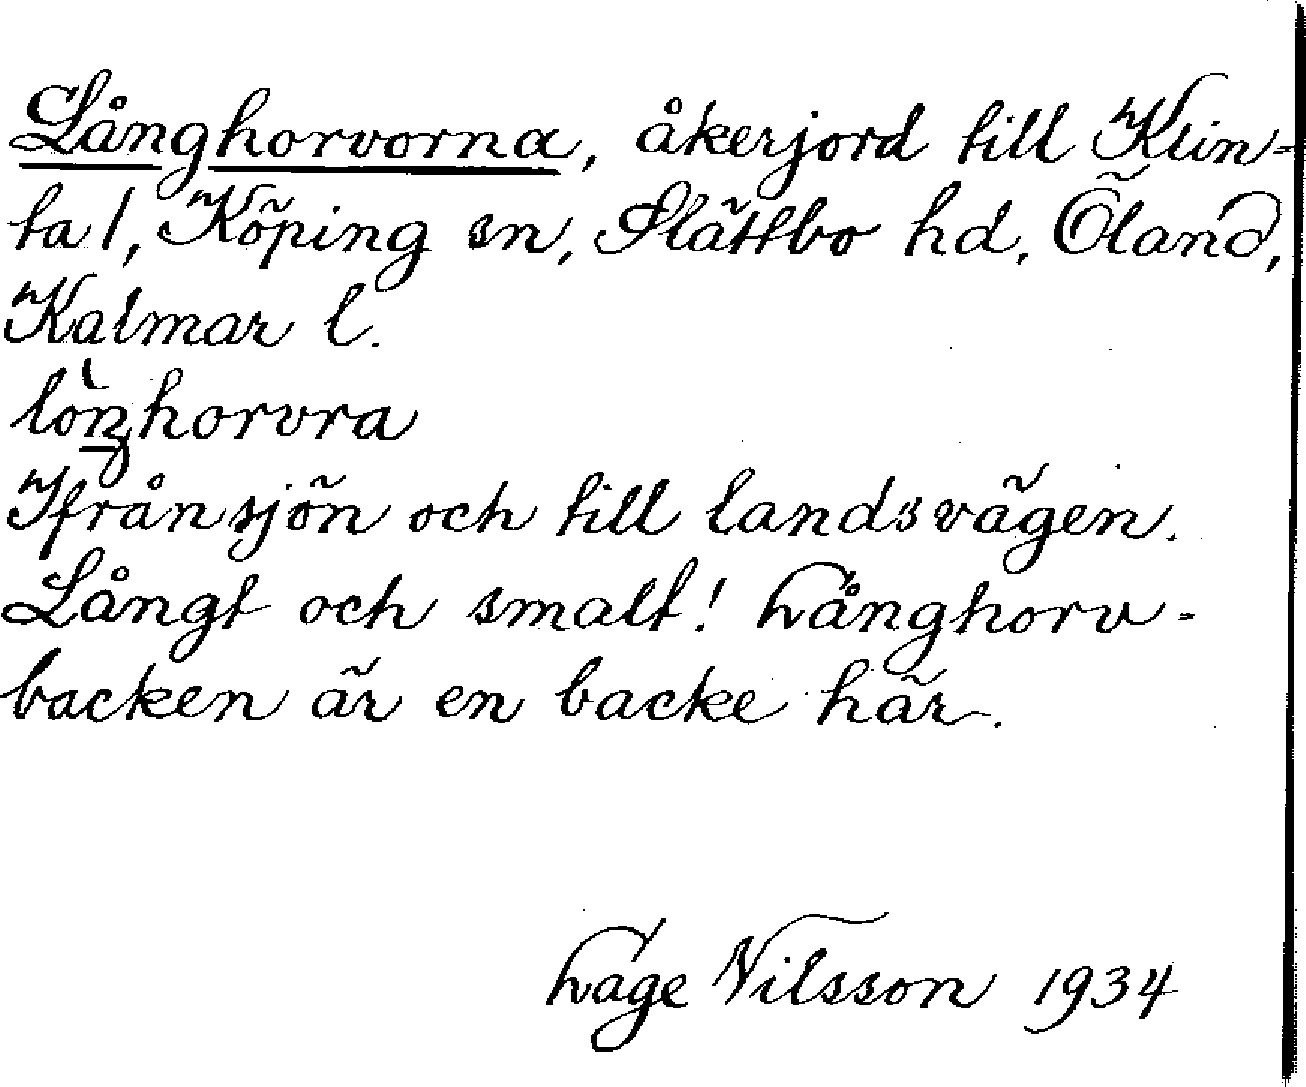 Långhorvorna, åkerjord till Klin-
ta 1, Köping sn, Slättbo hd, Öland,
Kalmar l.
lònhorvra
Ifrån sjön och till landsvägen.
Långt och smalt! Långhorv-
backen är en backe här.
Låge Nilsson 1934